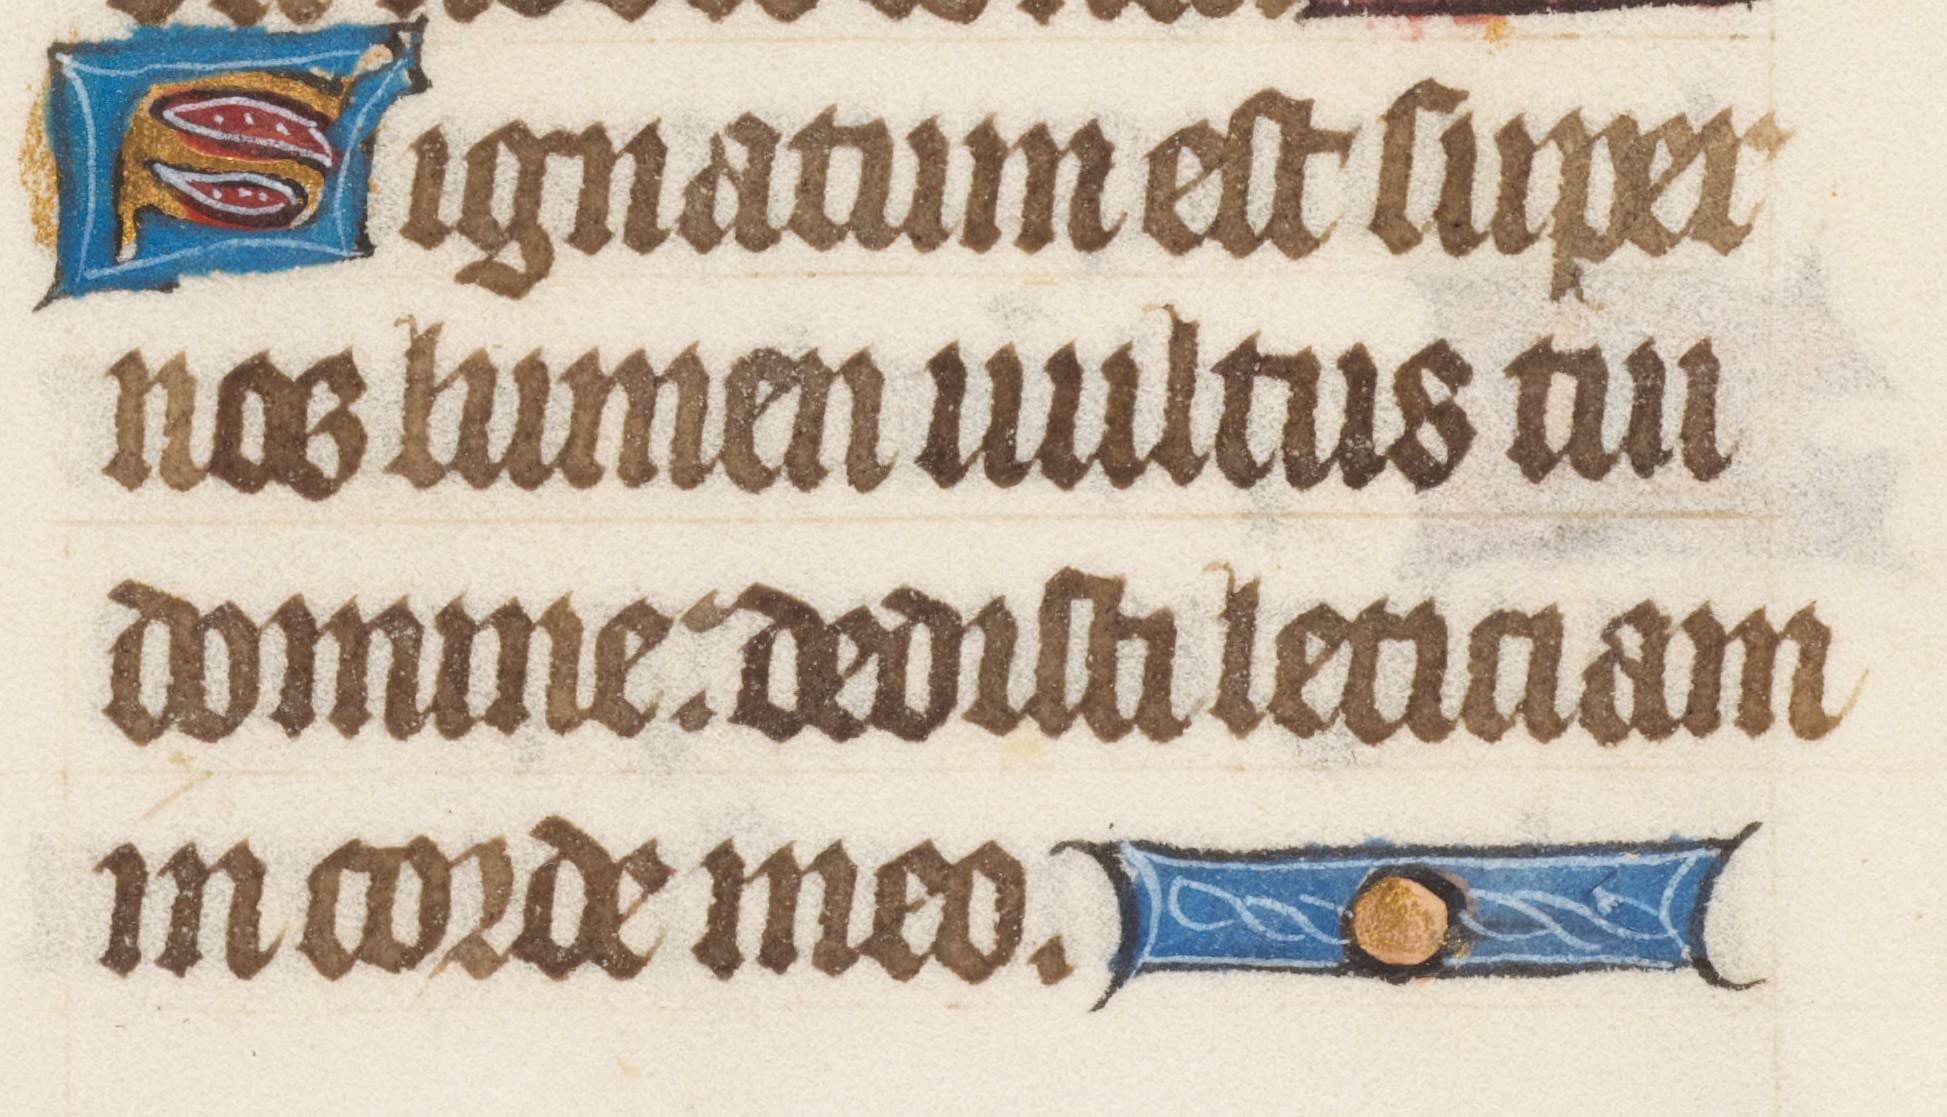 Signatum est super
nos lumen uultus tui
domine. dedisti leticiam
in corde meo.